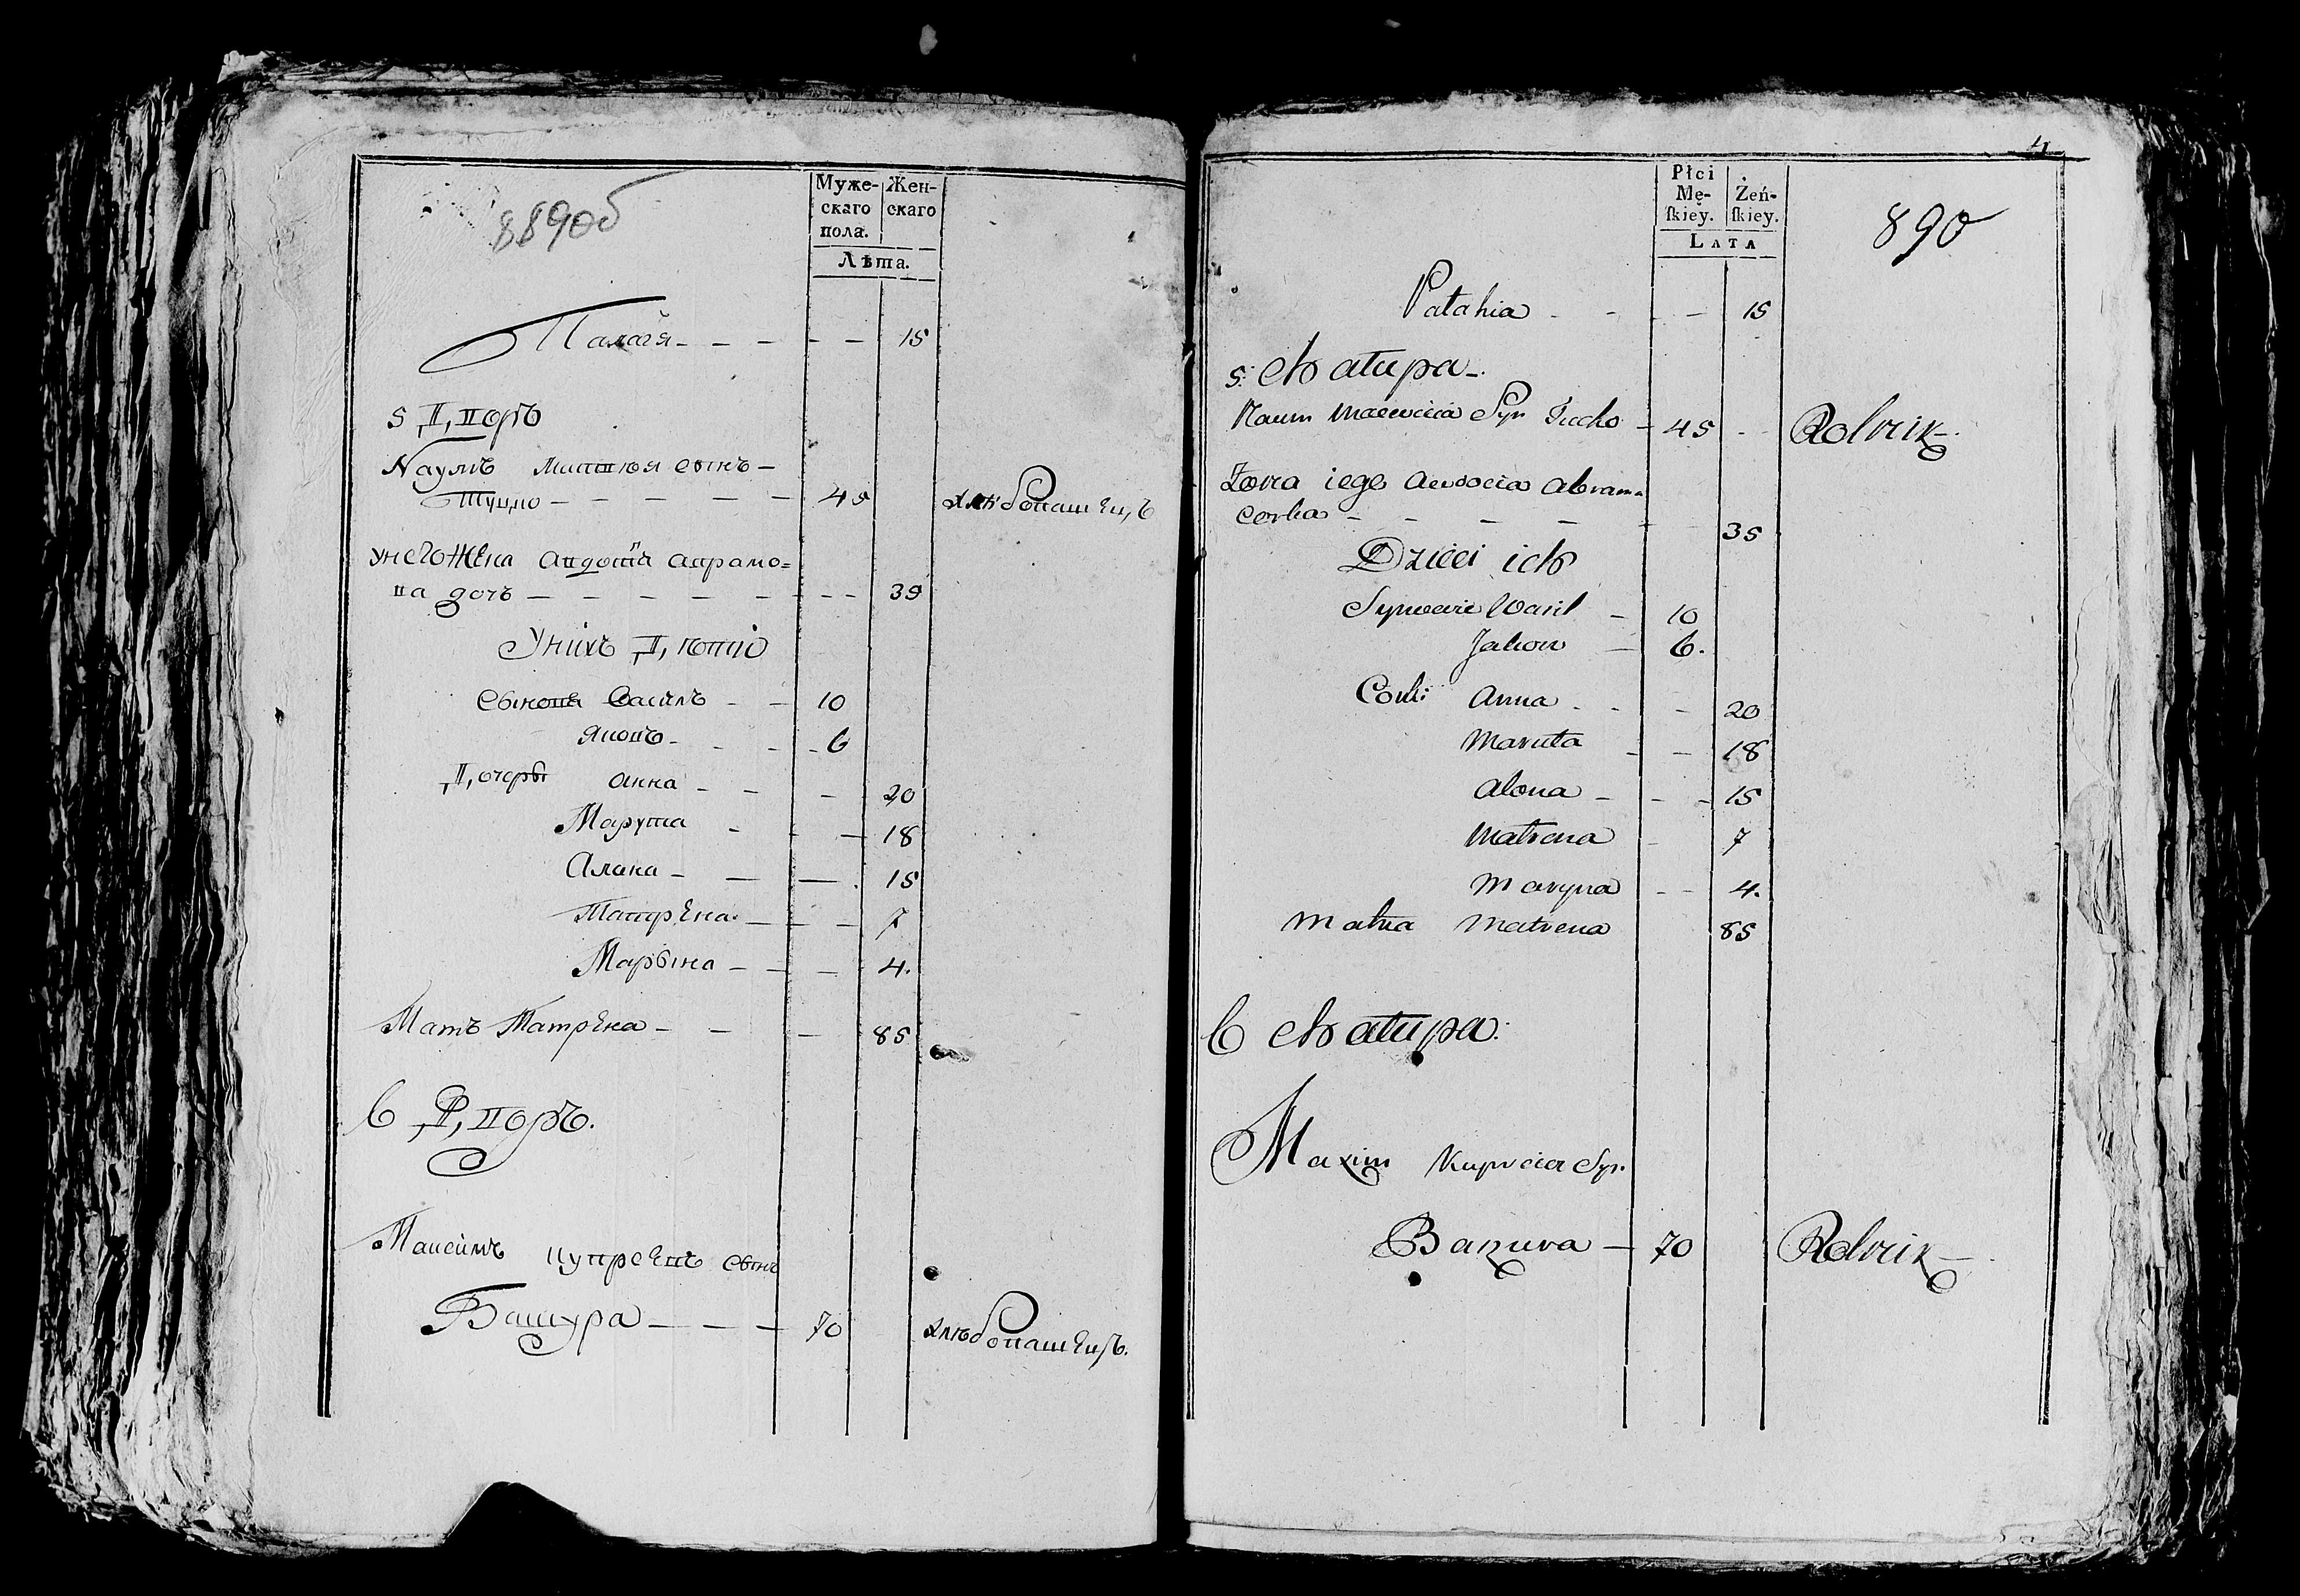 889об
Муже-
скаго
пола.
Жен-
скаго
Лѣта.
Палагя - - - - - 15
5 Дворъ
Наумъ сынъ -
- - - - - 45 хлѣбопашецъ
У него жена Авдотiя Аврамо=
ва дочъ - - - - - - - - 35
У нихъ Дѣти
Сыновя Василъ - - 10
Яковъ - - - - 6
Дочеры Анна - - - 20
Марута - - - 18
Алана - - - . 15
Матрена - - - 7
Марына - - - 4.
Матъ Матрена - - - 85
6 Дворъ.
Максимъ Купреевъ сынъ
Вакура - - - 70 хлѣбопашецъ.
4
Płci
Mę-
ſkiey.
Żeń-
ſkiey.
LATA
890
Palahia - - - - 15
5: Chatupa -.
Naum Syn - 45 - Rolnik -.
Żona iego Awdocia Abram=
corka - - - - - 35
Dzieci ich
Synowie Wasil - 10
Jakow - 6.
Corki Anna - - - 20
Maruta - - 18
Alona - - - 15
Matrena - 7
Maryna - - 4.
Matka Matrena 85
6 Chatupa:
Maxim Kupreiew Syn.
Bakura - 70 Rolnik -